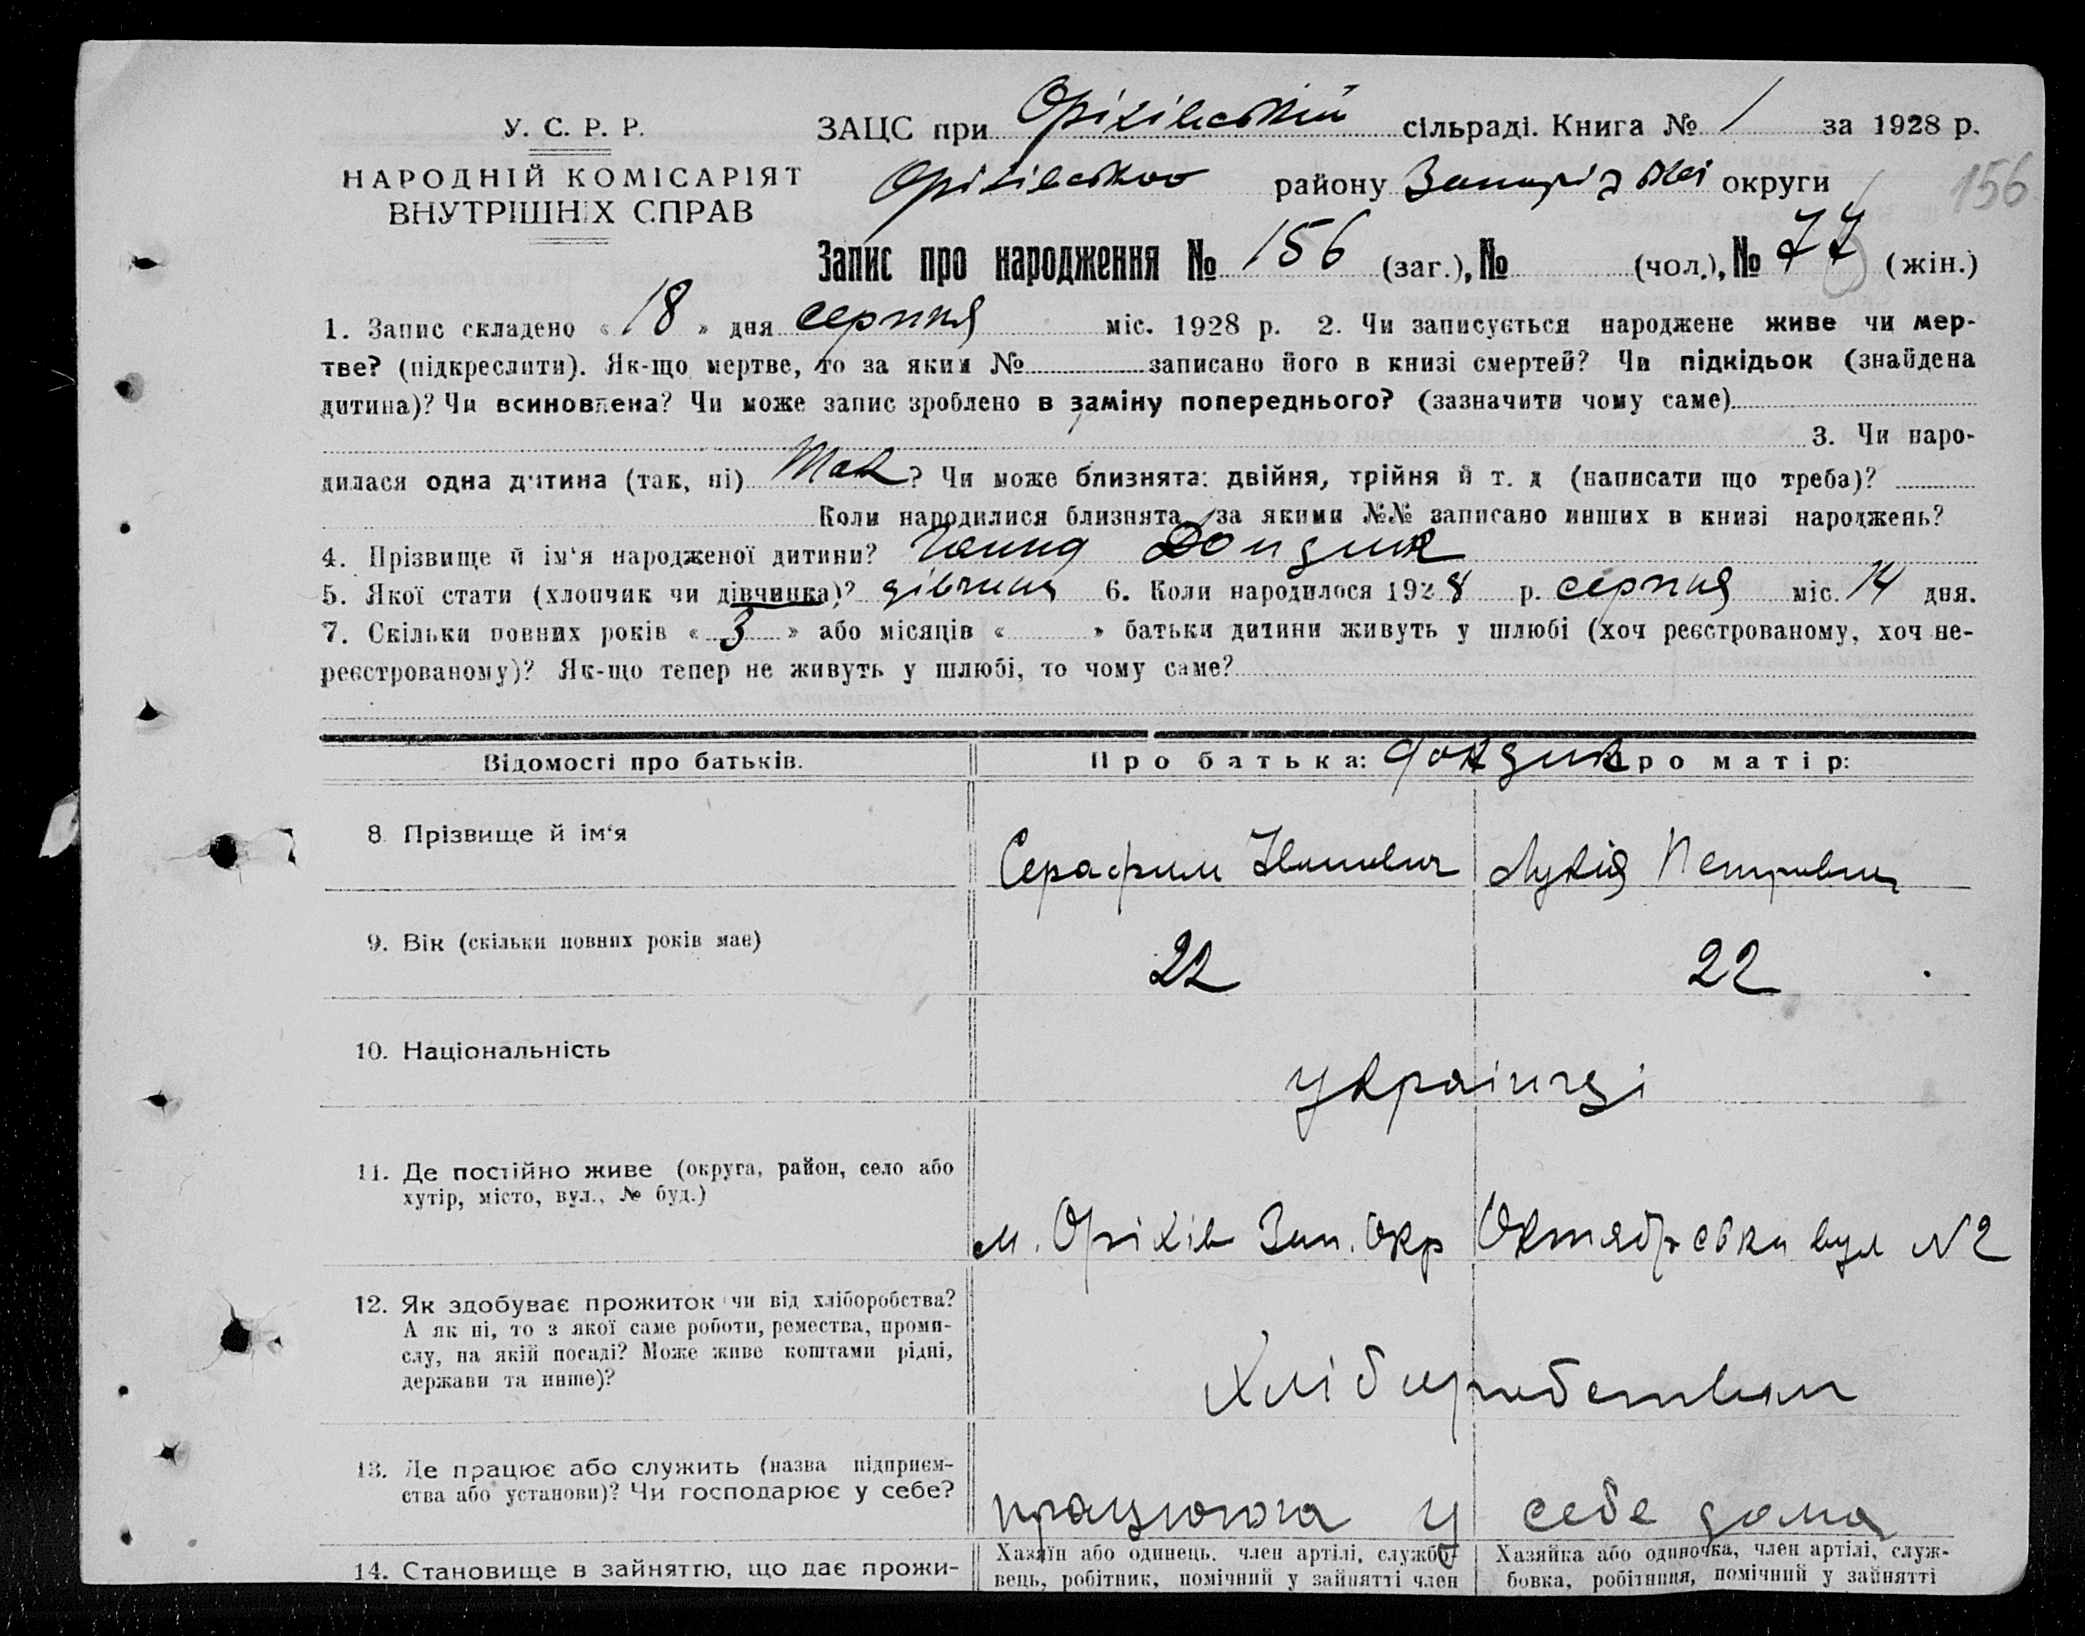 У. С. Р. Р.
НАРОДНІЙ КОМІСАРІЯТ
ВНУТРІШНІХ СПРАВ
ЗАЦС при Оріхівській сільраді. Книга № 1 за 1928 р.
Оріхівського району Запорізької округи
156
Запис про народження № 156 (заг.), № (чол.), № 77 (жін.)
1. Запис складено « 18 » дня серпня міс. 1928 р. 2. Чи записується народжене живе чи мер-
тве? (підкреслити). Як-що мертве, то за яким № записано його в книзі смертей? Чи підкідьок (знайдена
дитина)? Чи всиновлена? Чи може запис зроблено в заміну попереднього? (зазначити чому саме)
3. Чи наро-
дилася одна дитина (так, ні) Так ? Чи може близнята: двійня, трійня й т. д (написати що треба)?
Коли народилися близнята, за якими №№ записано инших в книзі народжень?
4. Прізвище й ім‘я народженої дитини?
5. Якої стати (хлопчик чи дівчинка)? дівчина 6. Коли народилося 1928 р. серпня міс. 14 дня.
7. Скільки повних років « 3 » або місяців « » батьки дитини живуть у шлюбі (хоч реєстрованому, хоч не-
реєстрованому)? Як-що тепер не живуть у шлюбі, то чому саме?
Відомості про батьків. Про батька: Про матір:
8. Прізвище й ім‘я Серафим Іванович Лукія Петрівна
9. Вік (скільки повних років має) 22 22
10. Національність українці
11. Де постійно живе (округа, район, село або
хутір, місто, вул., № буд.)
м. Оріхів Зап. Окр Октябрська вул N2
12. Як здобуває прожиток чи від хліборобства?
А як ні, то з якої саме роботи, ремества, проми-
слу, на якій посаді? Може живе коштами рідні,
держави та инше)?
Хліборобством
13. Де працює або служить (назва підприєм-
ства або установи)? Чи господарює у себе?
у себе дома
14. Становище в зайняттю, що дає прожи-
Хазяїн або одинець, член артілі, службо-
вець, робітник, помічний у зайнятті член
Хазяйка або одиночка, член артілі, служ-
бовка, робітниця, помічний у зайнятті